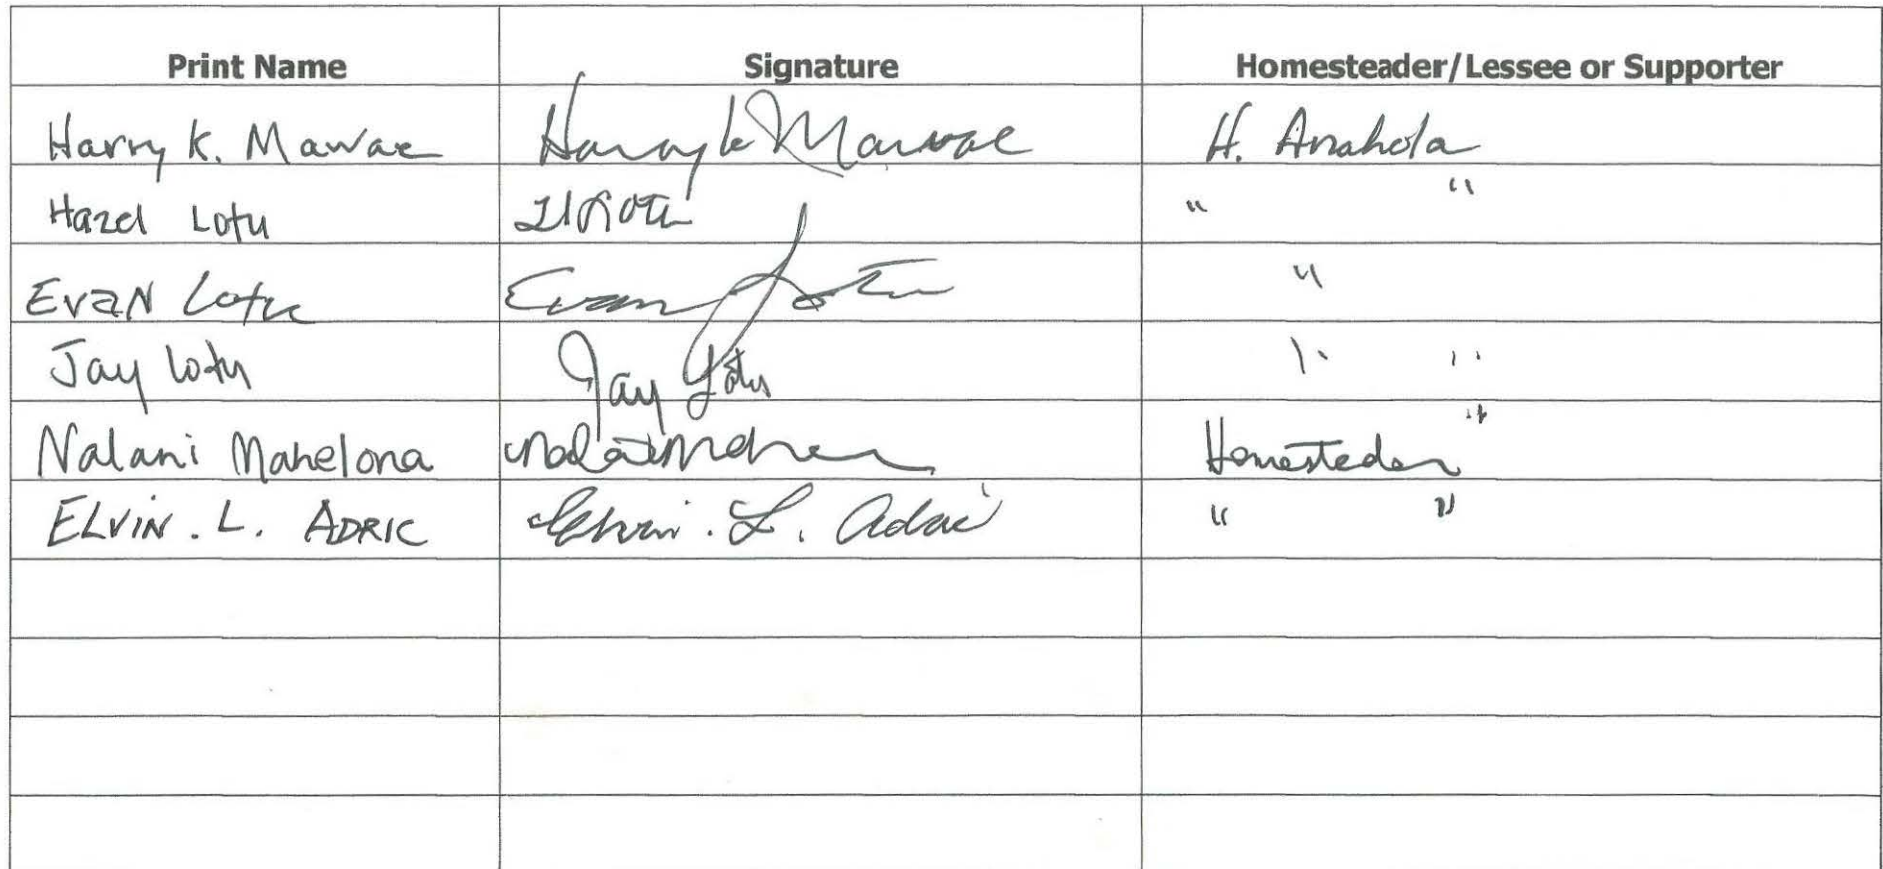 Print Name Signature Homesteader/Lessee or Supporter
Harry K. Mawae Harry K Mawae H. Anahola
Hazel Lotu HLotu " "
Evan Lotu Evan Lotu "
Jay Lotu Jay Lotu " "
Nalani Mahelona Homesteder "
ELVIN. L. ADRIC Elvin. L. Adric " "